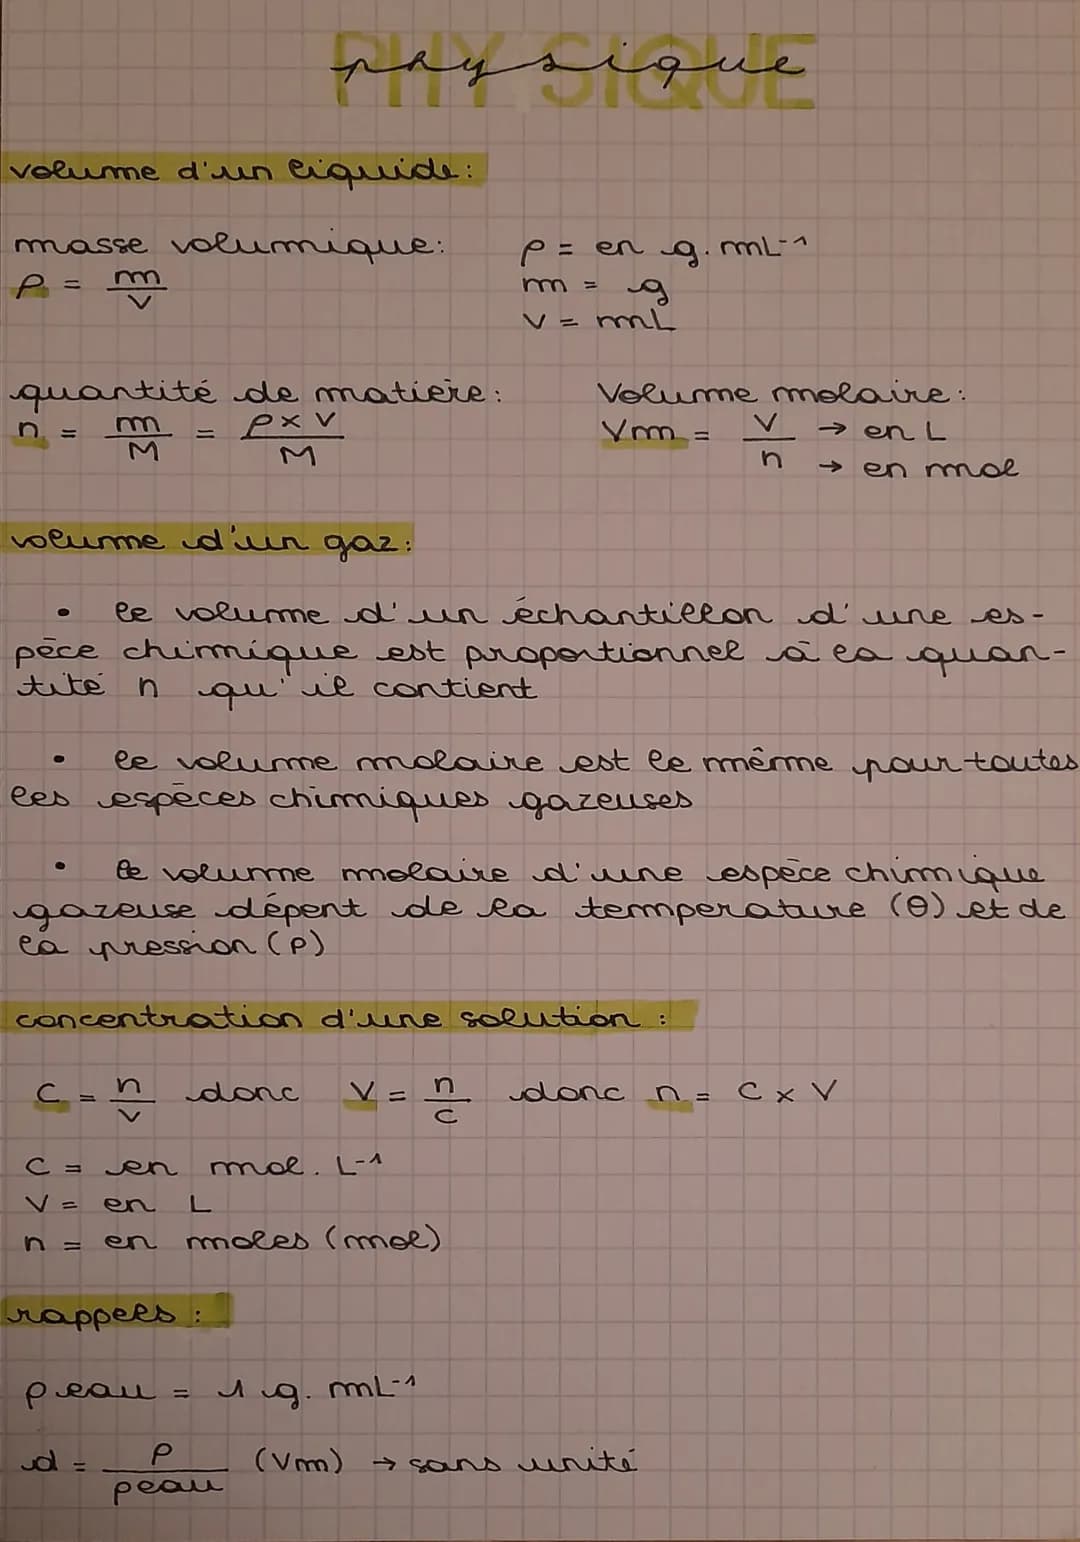 PHYSIQUE
physique
volume d'un liquide:
masse volumique:
ρ = m/V
ρ = en g.mL-1
m = g
V = mL
quantité de matière:
n = m/M = ρ x V/M
Volume molaire:
Vm = V/n → en L
→ en mol
volume d'un gaz:
• le volume d'un échantillon d'une es-
pèce chimique est proportionnel à la quan-
tité n qu'il contient
• le volume molaire est le même pour toutes
les espèces chimiques gazeuses
• le volume molaire d'une espèce chimique
gazeuse dépent de la temperature (θ) et de
la pression (P)
concentration d'une solution :
C = n/V donc V = n/C donc n = C x V
C = en mol.L-1
V = en L
n = en moles (mol)
rappels :
ρeau = 1 g.mL-1
d = ρ/ρeau (Vm) → sans unité